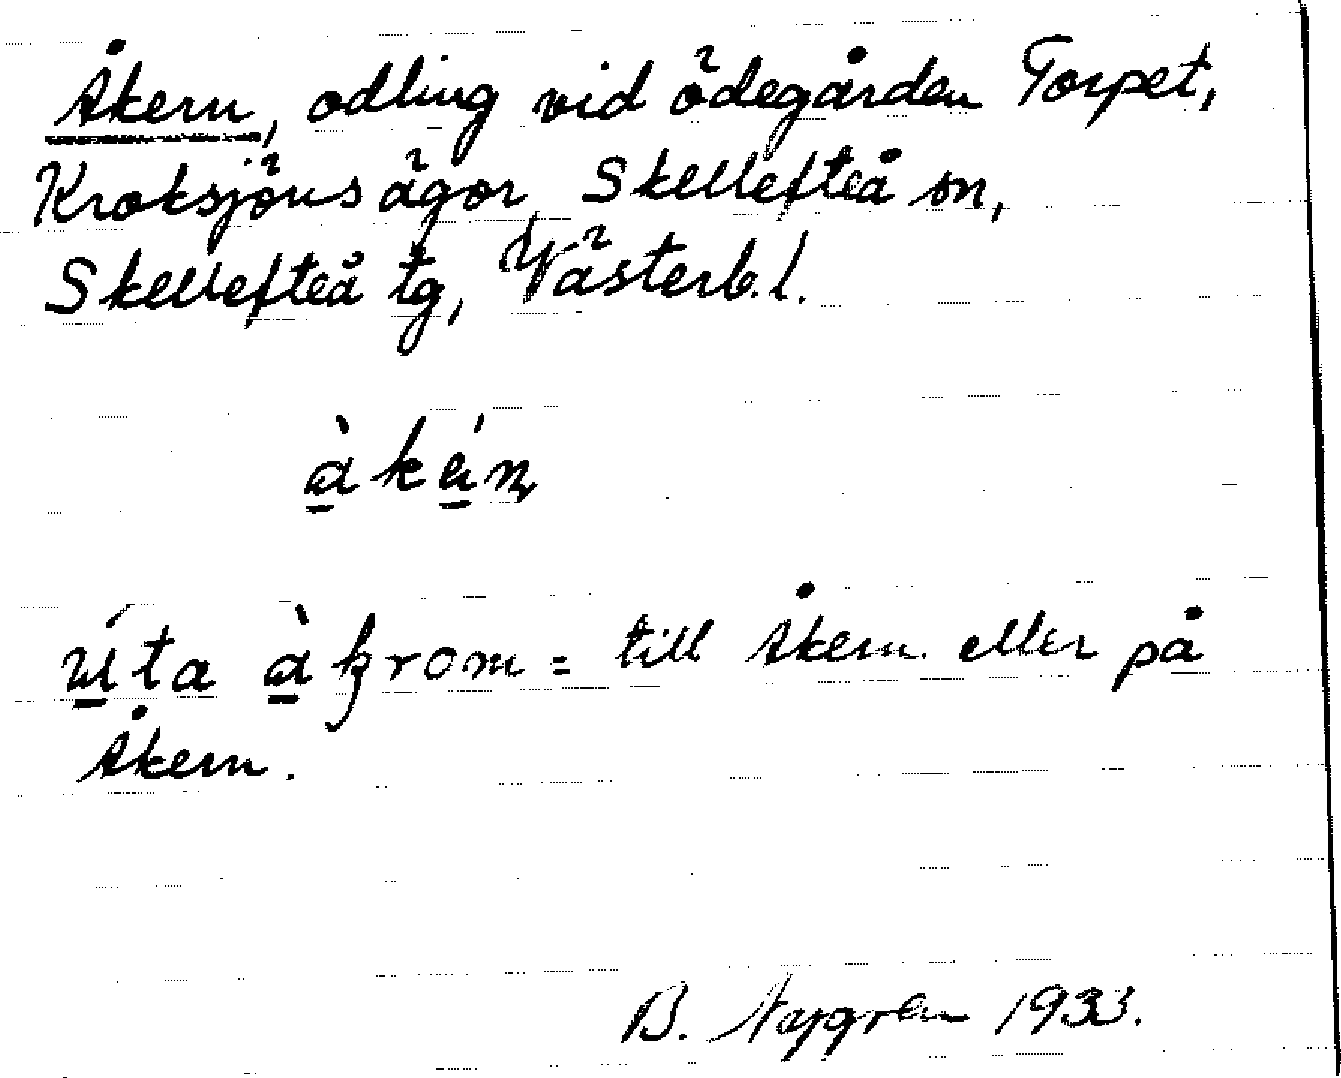 Åkern, odling vid ödegården Torpet,
Kroksjöns ägor, Skellefteå sn,
Skellefteå tg, Västerb. l.
àkán
úta àkrom = till Åkern eller på
Åkern.
B. Nygren 1933.